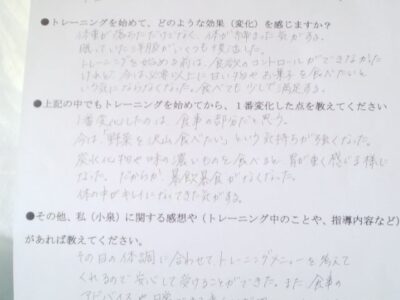 ●トレーニングを始めて、どのような効果（変化）を感じますか？
体重が減っただけでなく、体が締まった気がする。
眠っていた洋服がいくつも復活した。
トレーニングを始める前は、食欲のコントロールができなかった
けれど、今は必要以上に甘い物やお菓子を食べたいと
いう気にならなくなった。食べても少しで満足する。
●上記の中でもトレーニングを始めてから、１番変化した点を教えてください
1番変化したのは、食事の部分だと思う。
今は「野菜を沢山食べたい」という気持ちが強くなった。
炭水化物や味の濃いものを食べると、胃が重く感じる様に
なった。だからか、暴飲暴食がなくなった。
体の中がキレイになってきた気がする。
●その他、私（小泉）に関する感想や（トレーニング中のことや、指導内容など）
があれば教えてください。
その日の体調に合わせて、トレーニングメニューを考えて
くれるので安心して受けることができた。また、食事の
アドバイスや